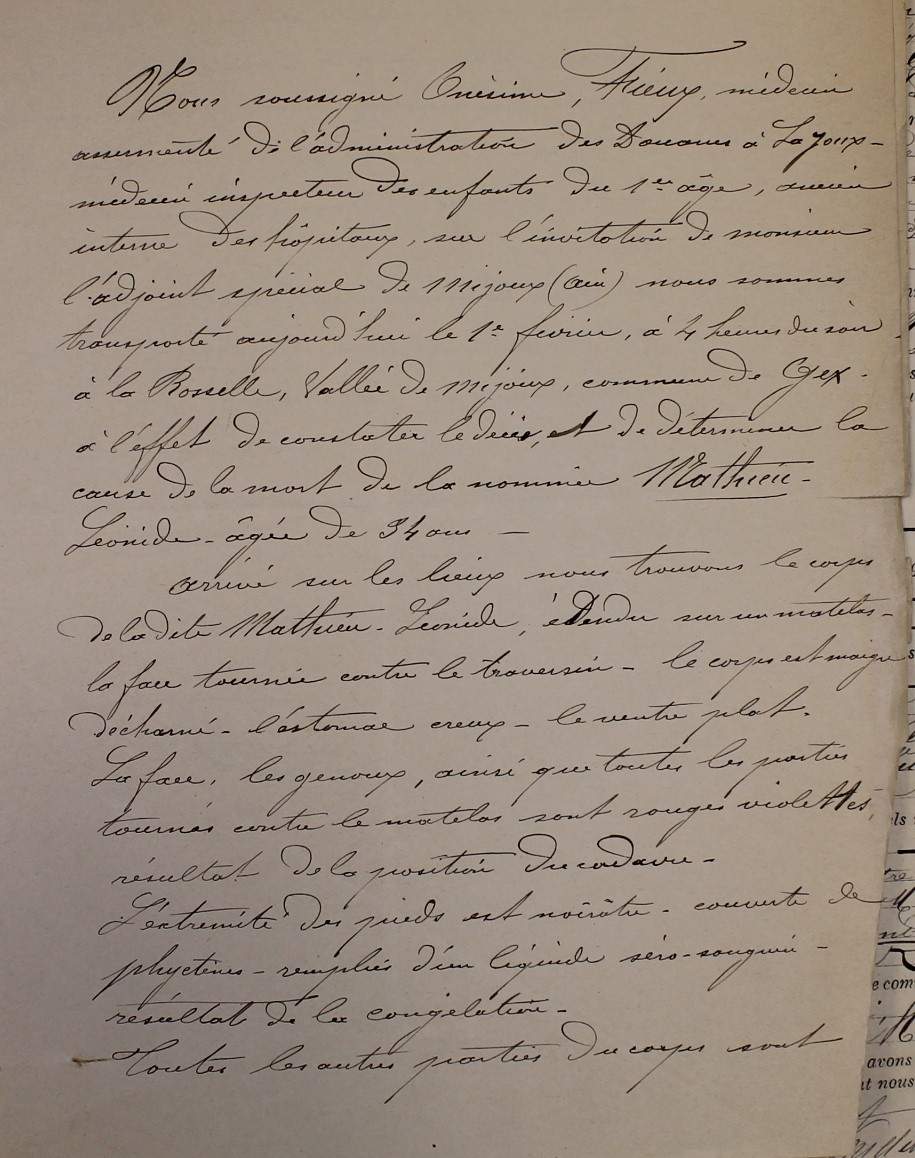 Nous soussigné Onésime, Fieux, médecin
assermenté de l'administration des Douanes à La Joux -
médecin inspecteur des enfants du 1er âge, ancien
interne des hôpitaux, sur l'invitation de monsieur
l'adjoint spécial de Mijoux (Ain) nous sommes
transporté aujourd'hui le 1er février, à 4 heures du soir
à la Rosselle, Vallée de Mijoux, commune de Gex -
à l'éffet de constater le décès, et de déterminer la
cause de la mort de la nommée Mathieu -
Léonide - âgée de 34 ans -
Arrivé sur les lieux nous trouvons le corps
de la dite Mathieu - Léonide, étendu sur un matelas -
la face tournée contre le traversin - le corps est maigre
décharné - l'éstomac creux - le ventre plat.
La face, les genoux, ainsi que toutes les parties
tournés contre le matelas sont rouges violettes,
résultat de la position du cadavre -
L'extremité des pieds est noirâtre - couverte de
phyctènes - remplies d'un liquide séro-sanguin -
résultat de la congélation -
- Toutes les autres parties du corps sont
els
tre
e com
avons
nt nous